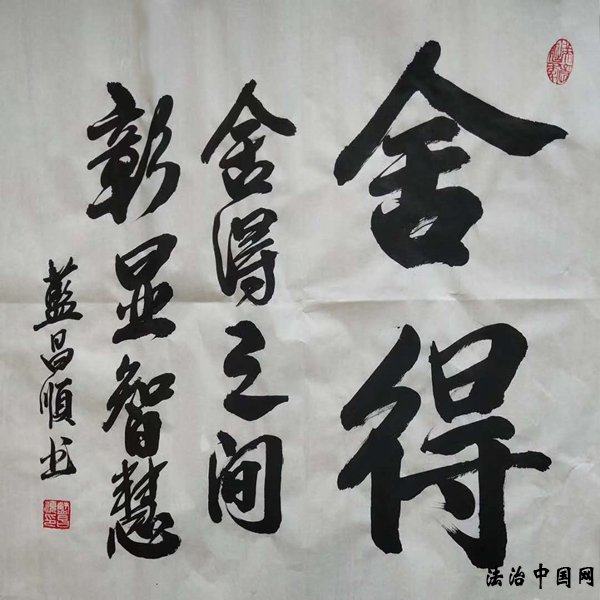 舍得
舍得之间
彰显智慧
藍昌順书
法治中国网